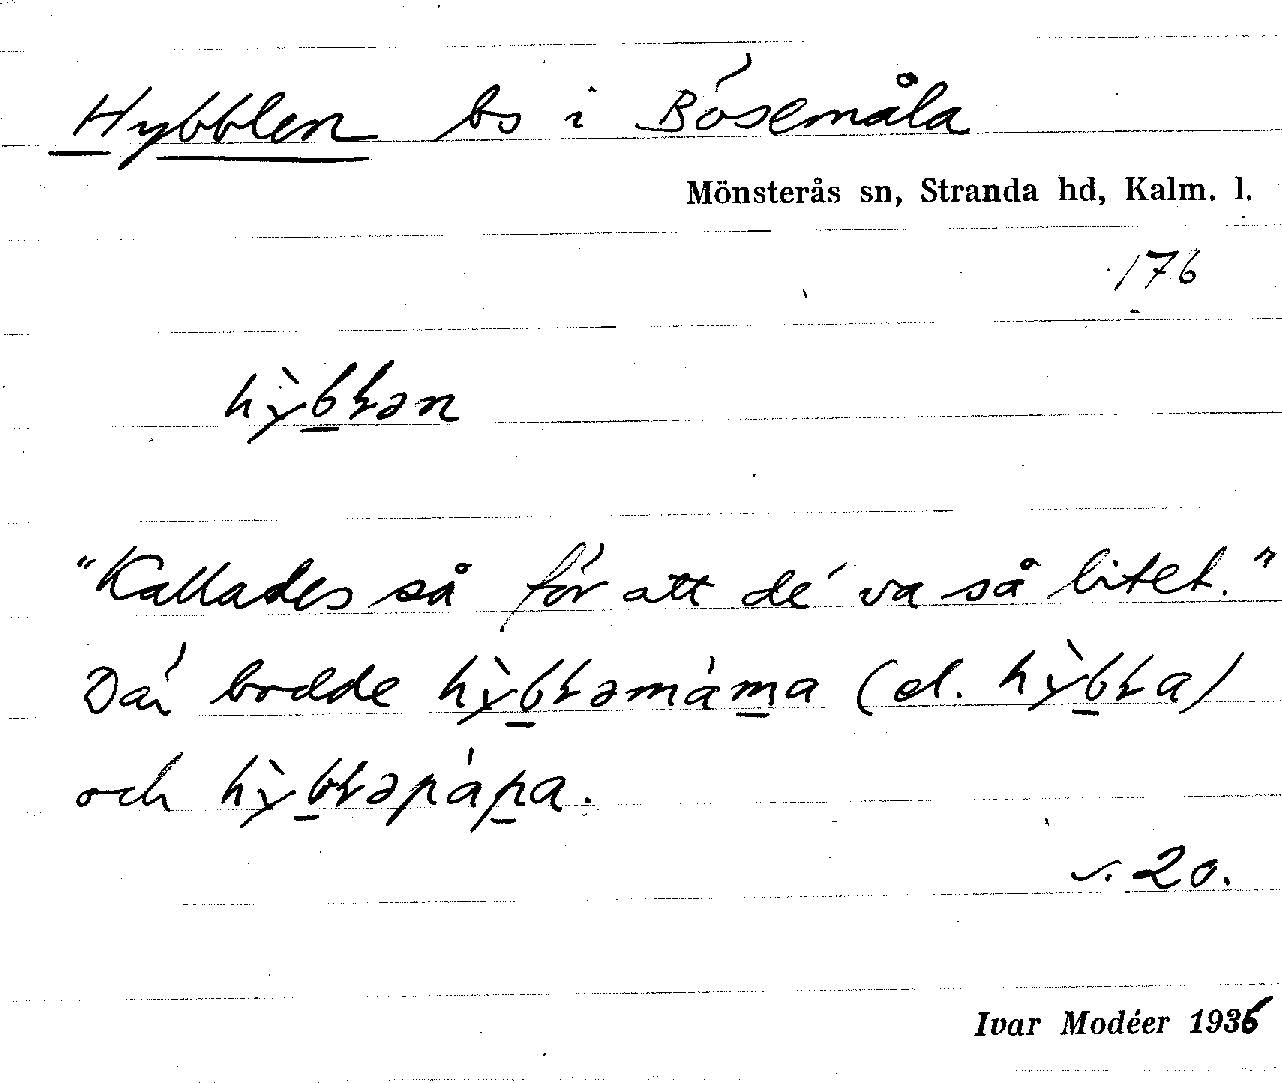 Hybblen bs i Bösemåla
Mönsterås sn, Stranda hd, Kalm. l.
176
hỳb̲ɫən
"Kallades så för att de' va så litet."
Där bodde hỳb̲ɫəmám̲a (el. hỳb̲ɫa)
och hỳb̲ɫəpáp̲a.
s. 20.
Ivar Modéer 1936